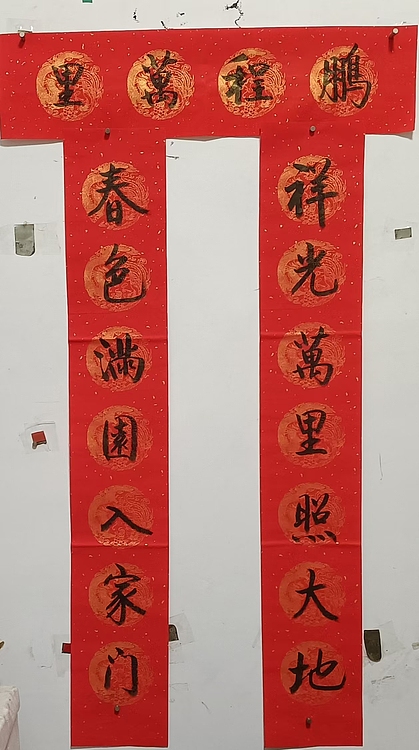 鹏程萬里
祥光萬里照大地
春色满園入家门